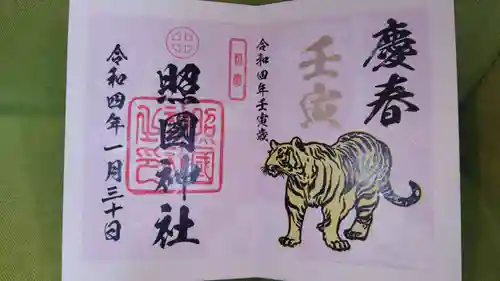 慶春
壬寅
令和四年壬寅歳
照國神社
令和四年一月三十日